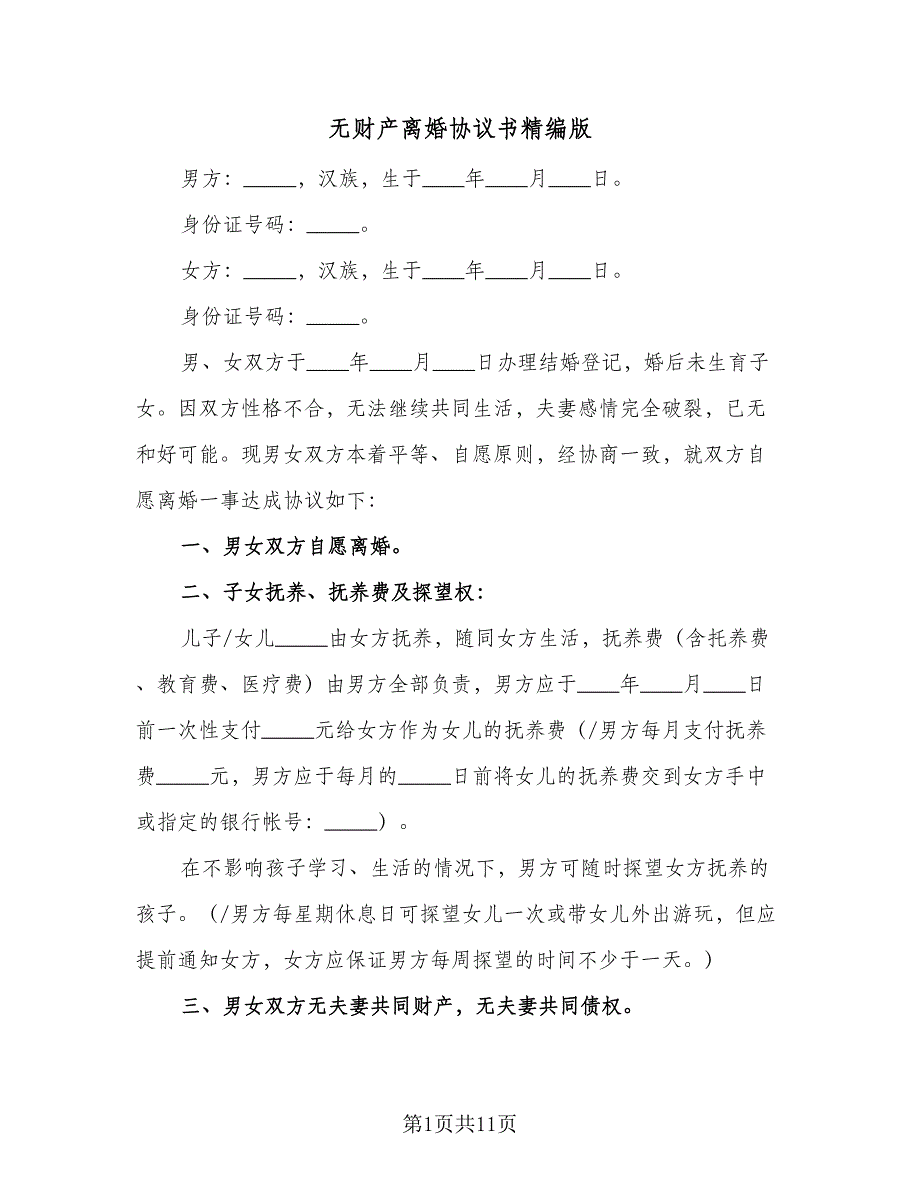 无财产离婚协议书精编版
男方：_____，汉族，生于____年____月____日。
身份证号码：_____。
女方：_____，汉族，生于____年____月____日。
身份证号码：_____。
男、女双方于____年____月____日办理结婚登记，婚后未生育子
女。因双方性格不合，无法继续共同生活，夫妻感情完全破裂，已无
和好可能。现男女双方本着平等、自愿原则，经协商一致，就双方自
愿离婚一事达成协议如下：
一、男女双方自愿离婚。
二、子女抚养、抚养费及探望权：
儿子/女儿_____由女方抚养，随同女方生活，抚养费（含托养费
、教育费、医疗费）由男方全部负责，男方应于____年____月____日
前一次性支付_____元给女方作为女儿的抚养费（/男方每月支付抚养
费_____元，男方应于每月的_____日前将女儿的抚养费交到女方手中
或指定的银行帐号：_____）。
在不影响孩子学习、生活的情况下，男方可随时探望女方抚养的
孩子。（/男方每星期休息日可探望女儿一次或带女儿外出游玩，但应
提前通知女方，女方应保证男方每周探望的时间不少于一天。）
三、男女双方无夫妻共同财产，无夫妻共同债权。
第1页共11页